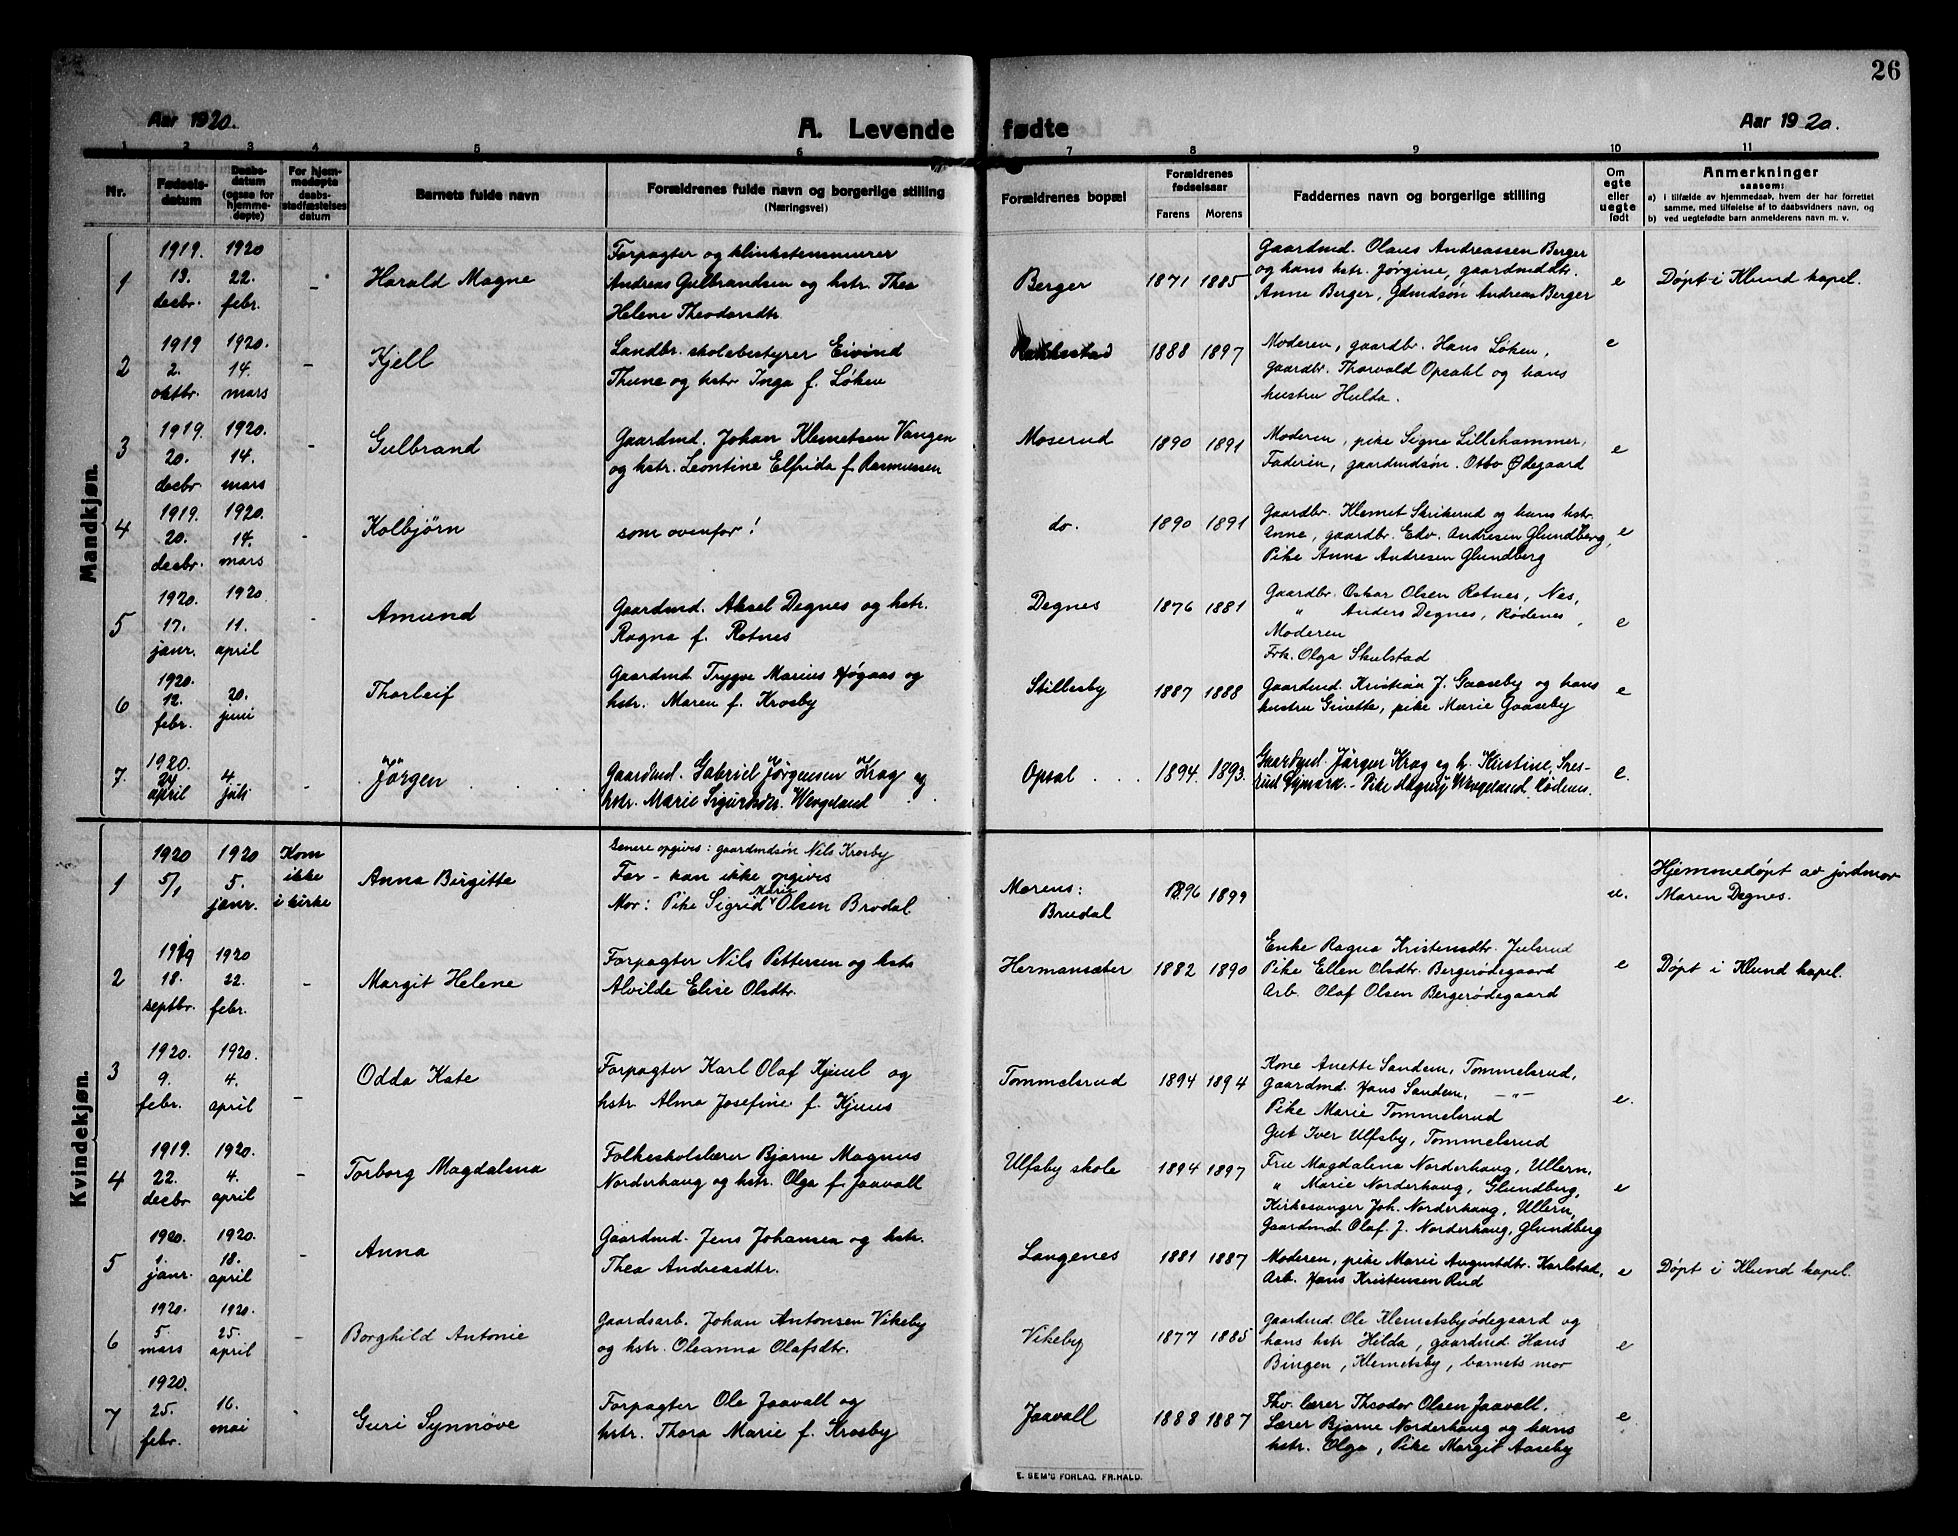 26
Aar 1920.
A. Levende fødte
Aar 1920.
1 2 3 4 5 6 7 8 9 10 11
Nr.
Fødsels-
datum
Daabs-
datum
(ogsaa for
hjemme-
døpte)
For hjem-
medøpte
daabs-
stadfæstelses
datum
Barnets fulde navn
Forældrenes fulde navn og borgerlige stilling
(Næringsvei)
Forældrenes bopæl
Forældrenes
fødselsaar
Farens Morens
Faddernes navn og borgerlige stilling
Om
egte
eller
uegte
født
Anmerkninger
saasom:
a) i tilfælde av hjemmedaab, hvem der har forrettet
samme, med tilføielse af to daabsvidners navn, og
b) ved uegtefødte barn anmelderens navn m. v.
Mandkjøn.
1
1919.
13.
desbr.
1920
22.
febr.
-
Harald Magne
Forpagter og klinkstensmurer
Andreas Gulbrandsen og hstr. Thea
Helene Theodorsdtr.
Berger
1871 1885
Gaardmd. Olaus Andreassen Berger
og hans hstr. Jørgine, gaardmddtr.
Anne Berger, Gdmdsøn Andreas Berger
e
Døpt i Klund kapel.
2
1919
2.
oktbr.
1920.
14.
mars
-
Kjell
Landbr. skolebestyrer Eivind
Thune og hstr Inga f. Løken
Rakkestad
1888 1897
Moderen, gaardbr. Hans Løken,
gaardbr. Thorvald Opsahl og hans
hustru Hulda.
e
3
1919.
20.
desbr
1920.
14.
mars
-
Gulbrand
Gaardmd. Johan Klemetsen Vangen
og hstr. Leontine Elfrida f. Rasmussen
Moserud
1890 1891
Moderen, pike Signe Lillehammer,
Faderen, gaardmdsøn. Otto Ødegaard
e
4
1919.
20.
desbr.
1920.
14.
mars
-
Kolbjørn
som ovenfor!
do.
1890 1891
Gaardbr. Klemet Skrikerud og hans hstr.
Anne, gaardbr. Edv. Andresen Glundberg,
Pike Anna Andresen Glundberg
e
5
1920.
17.
janr.
1920
11.
april
-
Amund
Gaardmd. Aksel Degnes og hstr.
Ragna f. Rotnes
Degnes
1876 1881
Gaardbr. Oskar Olsen Rotnes, Nes,
" Anders Degnes, Rødenes,
Moderen
Frk. Olga Skulstad
e
6
1920.
12.
febr.
20.
juni
Thorleif
Gaardmd Trygve Marius Høgaas og
hstr. Maren f. Krosby
Stillesby
1887 1888
Gaardmd. Kristian J. Gaaseby og hans
hustru Ginette, pike Marie Gaaseby
e
7.
1920.
24
april
4
juli
-
Jørgen
Gaardmd. Gabriel Jørgensen Krog og
hstr. Marie Sigurdsdtr. Wengeland
Opsal
1894. 1893.
Gaardmd. Jørgen Krog og h. Kristine,
Wengeland Rødenes.
e.
Kvindekjøn.
1
1920
5/1
1920
5.
janr.
Kom
ikke
i kirke
Anna Birgitte
Senere opgives: gaardmdsøn Nils Krosby
Far - kan ikke opgives
Mor: Pike Sigrid Marie Olsen Brodal
Morens:
Brudal
1896 1899
u.
Hjemmedøpt av jordmor
Maren Degnes.
2
1919
18.
septbr.
1920
22.
febr.
-
Margit Helene
Forpagter Nils Pettersen og hstr
Alvilde Elise Olsdtr.
Hermansæter
1882 1890
Enke Ragna Kristensdtr. Julsrud
Pike Ellen Olsdtr. Bergerødegaard
Arb. Olaf Olsen Bergerødegaard
e
Døpt i Klund kapel.
3
1920.
9.
febr.
1920.
4.
april
-
Odda Kate
Forpagter Karl Olaf Kjuul og
hstr. Alma Josefine f. Kjuus
Tommelsrud
1894 1894
Kone Anette Sandem, Tommelsrud,
Gaardmd. Hans Sandem, -"-
Pike Marie Tommelsrud
Gut Iver Ulfsby, Tommelsrud
e.
4
1919.
22.
desbr
1920.
4.
april
-
Torborg Magdalena
Folkeskolelærer Bjarne Magnus
Norderhaug og hstr. Olga f. Jaavall
Ulfsby skole
1894 1897
Fru Magdalena Norderhaug, Ullern,
" Marie Norderhaug, Glundberg,
Kirkesanger Joh. Norderhaug, Ullern,
Gaardmd. Olaf. J. Norderhaug, Glundberg
e
5
1920.
1.
janr.
1920.
18.
april
-
Anna
Gaardmd. Jens Johansen og hstr.
Thea Andreasdtr.
Langenes
1881 1887
Moderen, pike Marie Augustdtr. Karlstad,
Arb. Hans Kristensen Rud
e
Døpt i Klund kapel.
6
1920.
5.
mars
1920.
25.
april
-
Borghild Antonie
Gaardsarb. Johan Antonsen Vikeby
og hstr. Oleanna Olafsdtr.
Vikeby
1877 1885
Gaardmd Ole Klemetsbyødegaard og
hans hstr Hilda, gaardmd Hans
Bingen, Klemetsby, barnets mor
e
7
1920.
25.
febr.
16.
mai
-
Guri Synnøve
Forpagter Ole Jaavall og
hstr. Thora Marie f. Krosby
Jaavall
1888 1887
Fhv. lærer Theodor Olsen Jaavall,
Lærer Bjarne Norderhaug og hans
hstr. Olga, Pike Margit Aaseby
e
E. SEM'S FORLAG, FR.HALD.